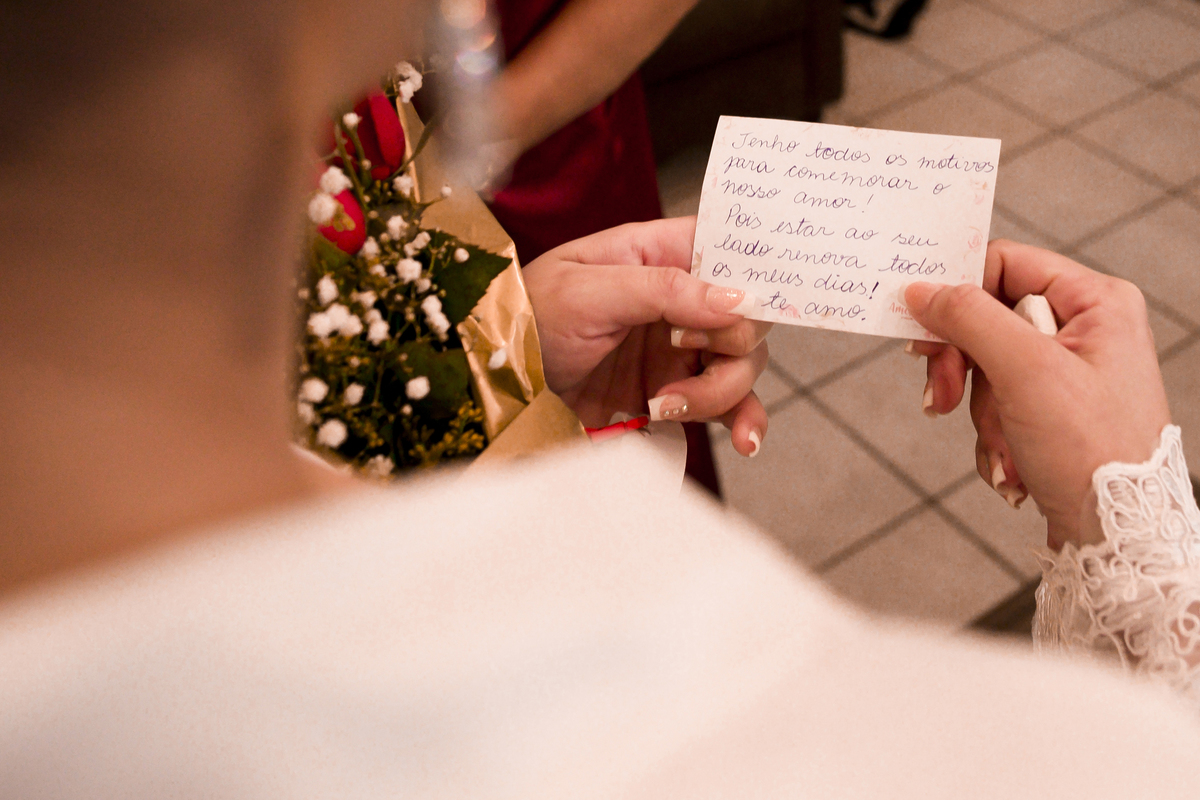 Tenho todos os motivos
para comemorar o
nosso amor!
Pois estar ao seu
lado renova todos
os meus dias!
te amo.